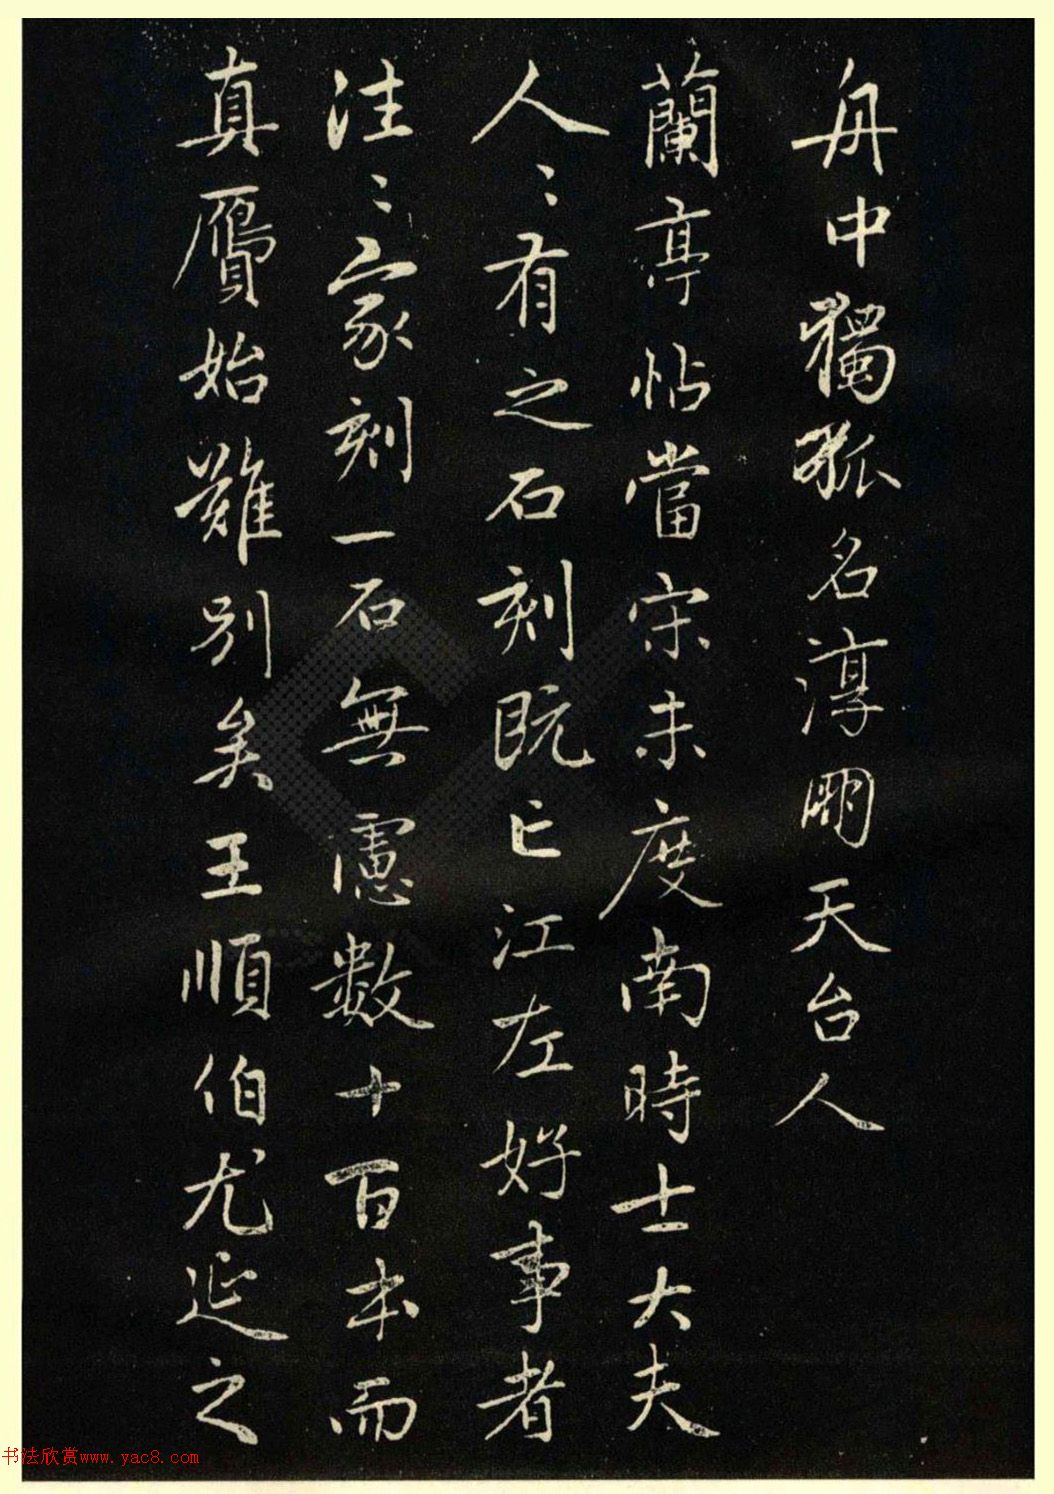 舟中獨孤名淳朋天台人
蘭亭帖當宋未度南時士大夫
人〻有之石刻既亡江左好事者
往〻家刻一石無慮數十百本而
真贗始難別矣王順伯尤延之
书法欣赏www.yac8.com